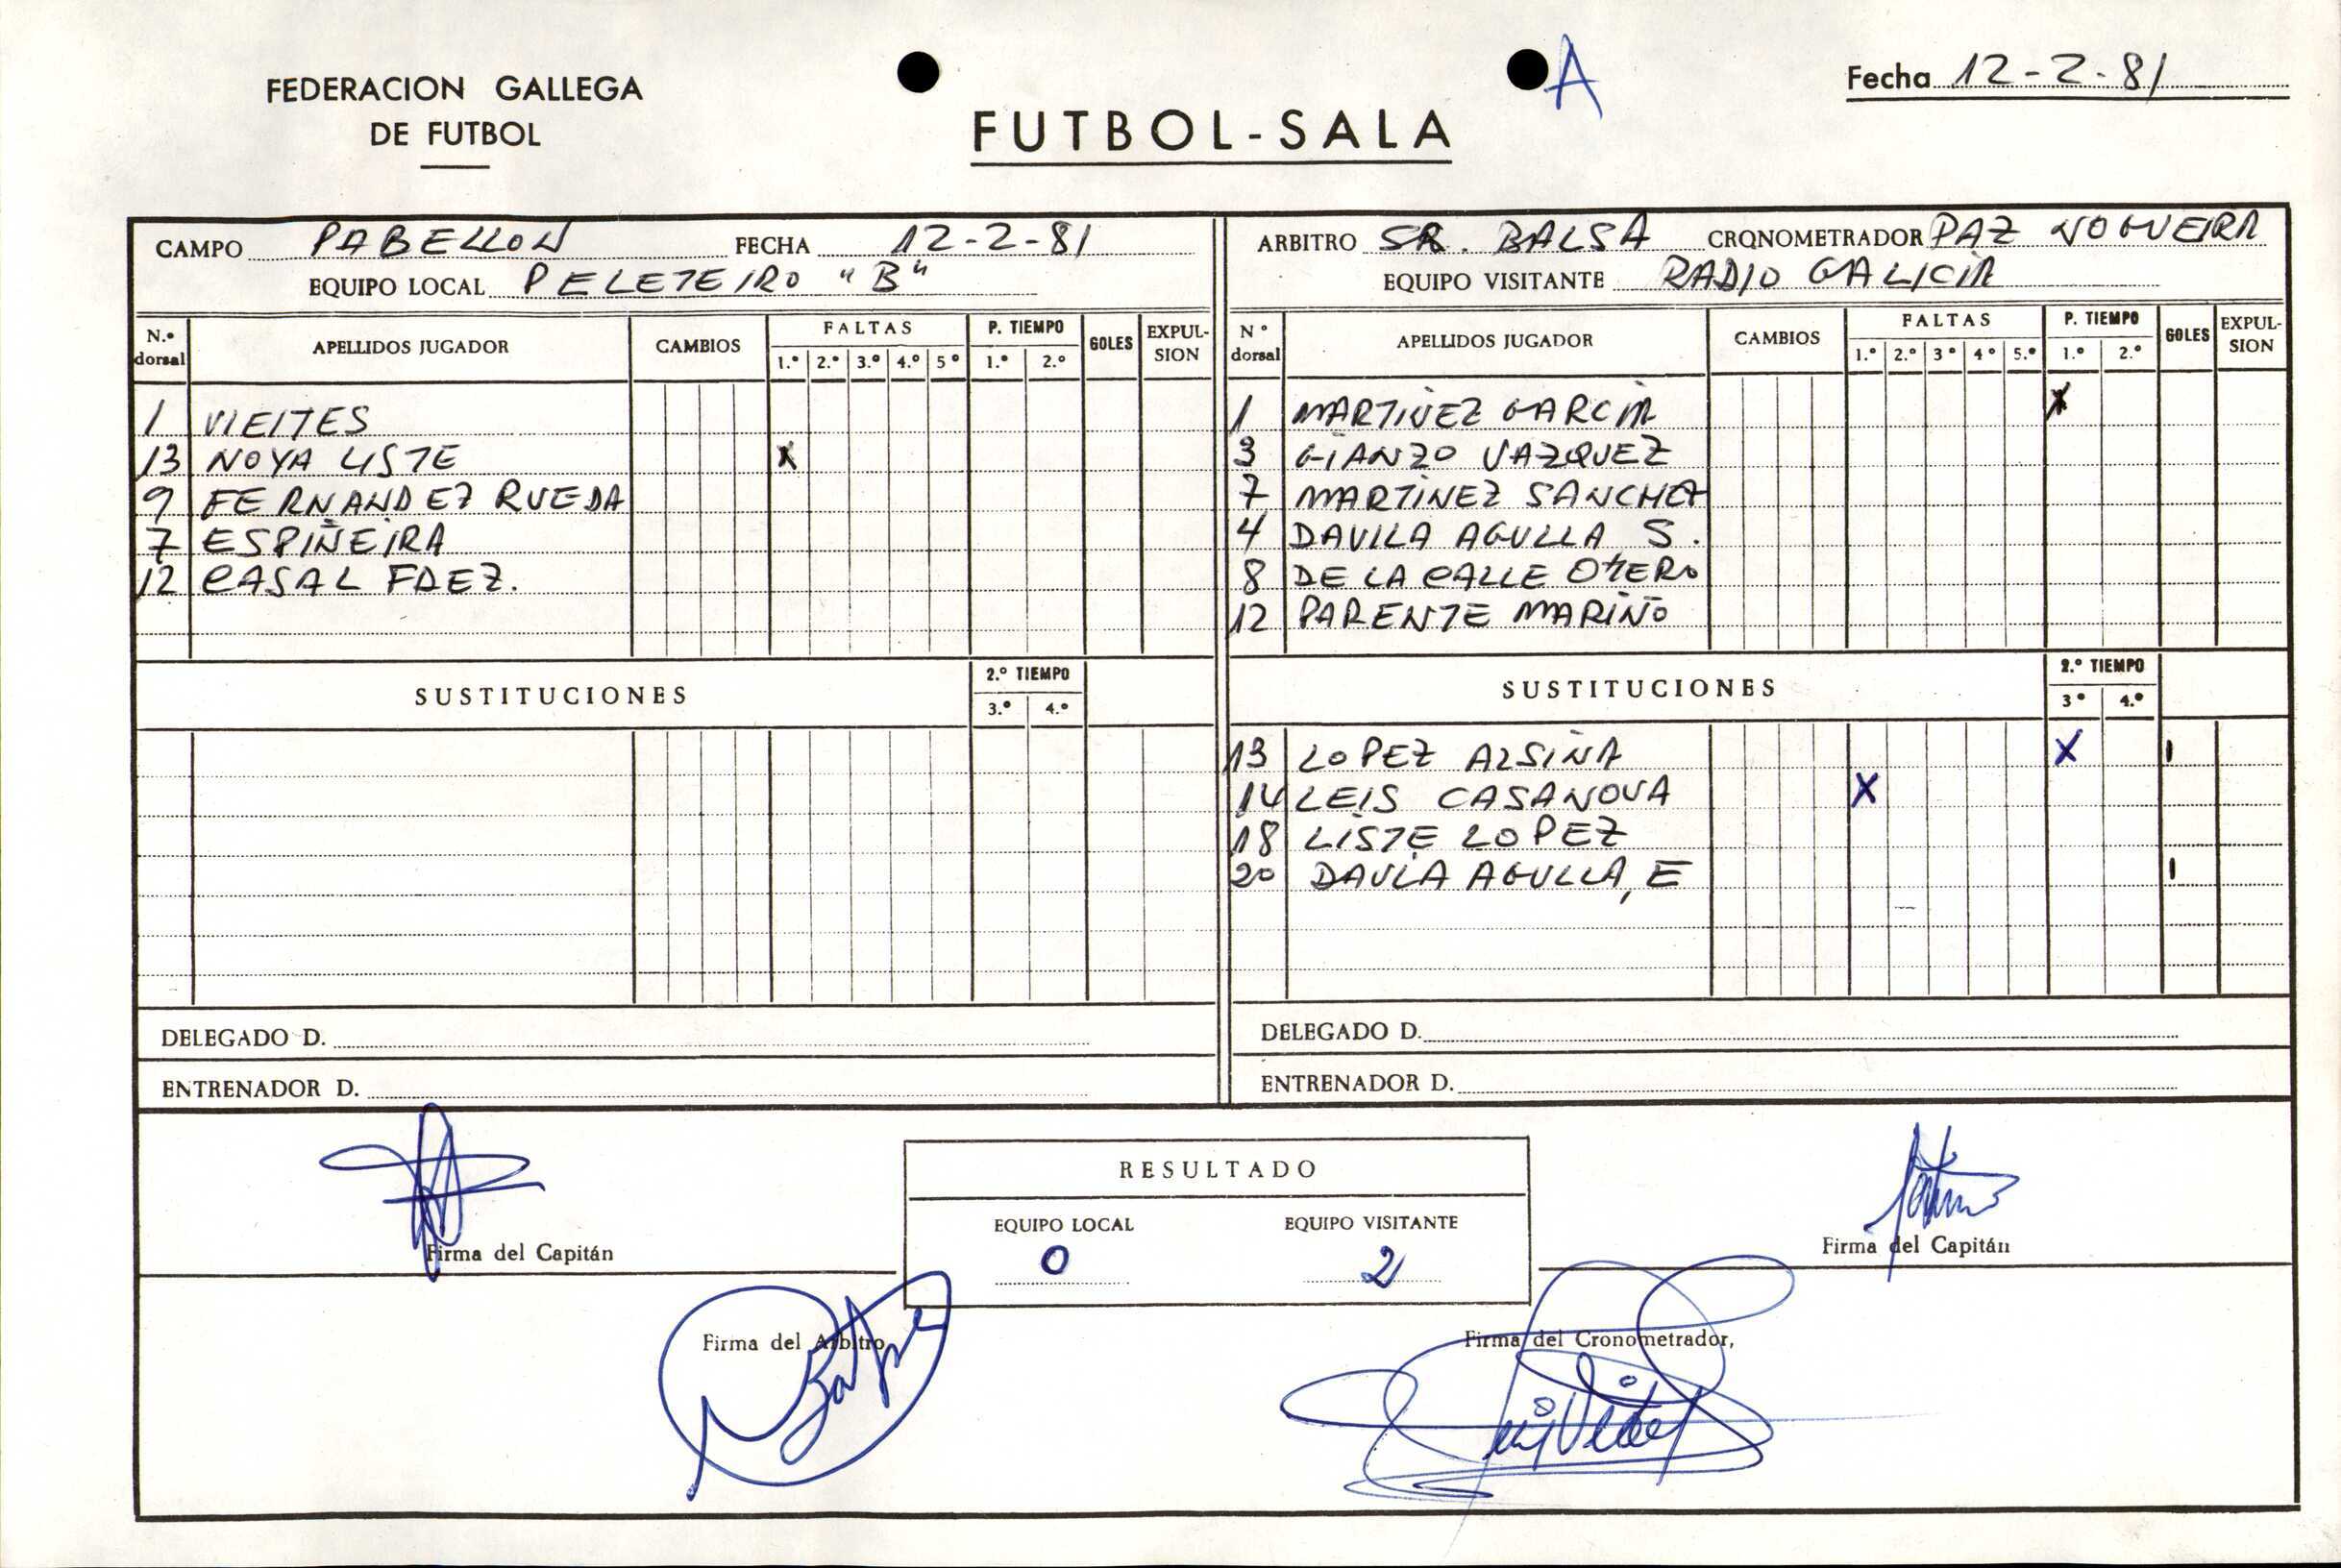 FEDERACION GALLEGA
DE FUTBOL
A
Fecha 12-2-81
FUTBOL-SALA
CAMPO PABELLON FECHA 12-2-81
EQUIPO LOCAL PELETEIRO "B"
N.º dorsal APELLIDOS JUGADOR CAMBIOS FALTAS 1.ª 2.ª 3.ª 4.ª 5ª P. TIEMPO 1.º 2.º GOLES EXPULSION
1 VIEITES
13 NOYA LISTE X
9 FERNANDEZ RUEDA
7 ESPIÑEIRA
12 CASAL FDEZ.
SUSTITUCIONES 2.º TIEMPO 3.º 4.º
DELEGADO D.
ENTRENADOR D.
ARBITRO SR. BALSA CRONOMETRADOR PAZ NOGUEIRA
EQUIPO VISITANTE RADIO GALICIA
N º dorsal APELLIDOS JUGADOR CAMBIOS FALTAS 1.ª 2.ª 3ª 4ª 5.ª P. TIEMPO 1.º 2.º GOLES EXPULSION
1 MARTINEZ GARCIA X
3 GIANZO VAZQUEZ
7 MARTINEZ SANCHEZ
4 DAVILA AGULLA S.
8 DE LA CALLE OTERO
12 PARENTE MARIÑO
SUSTITUCIONES 2.º TIEMPO 3º 4.º
13 LOPEZ ALSINA X 1
14 LEIS CASANOVA X
18 LISTE LOPEZ
20 DAVILA AGULLA, E 1
DELEGADO D.
ENTRENADOR D.
Firma del Capitán
RESULTADO
EQUIPO LOCAL EQUIPO VISITANTE
0 2
Firma del Capitán
Firma del Arbitro
Firma del Cronometrador,